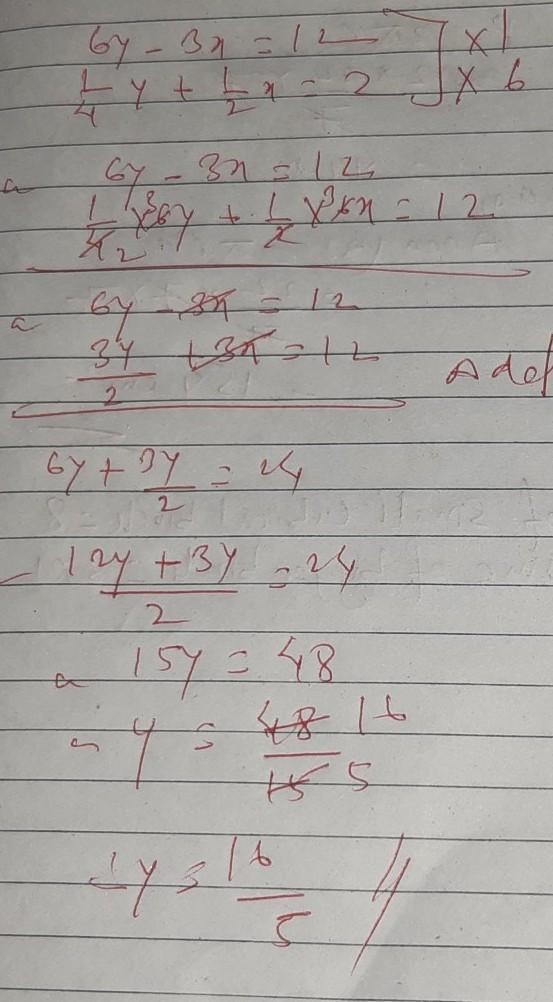 6y - 3x = 12 ] x 1
1/4 y + 1/2 x = 2 ] x 6
a 6y - 3x = 12
1/4 2 x 3 6y + 1/2 x 3 6x = 12
a 6y - 3x = 12
3y/2 + 3x = 12
6y + 3y/2 = 24
- 12y + 3y/2 = 24
a 15y = 48
y = 48/15 16/5
y = 16/5 //